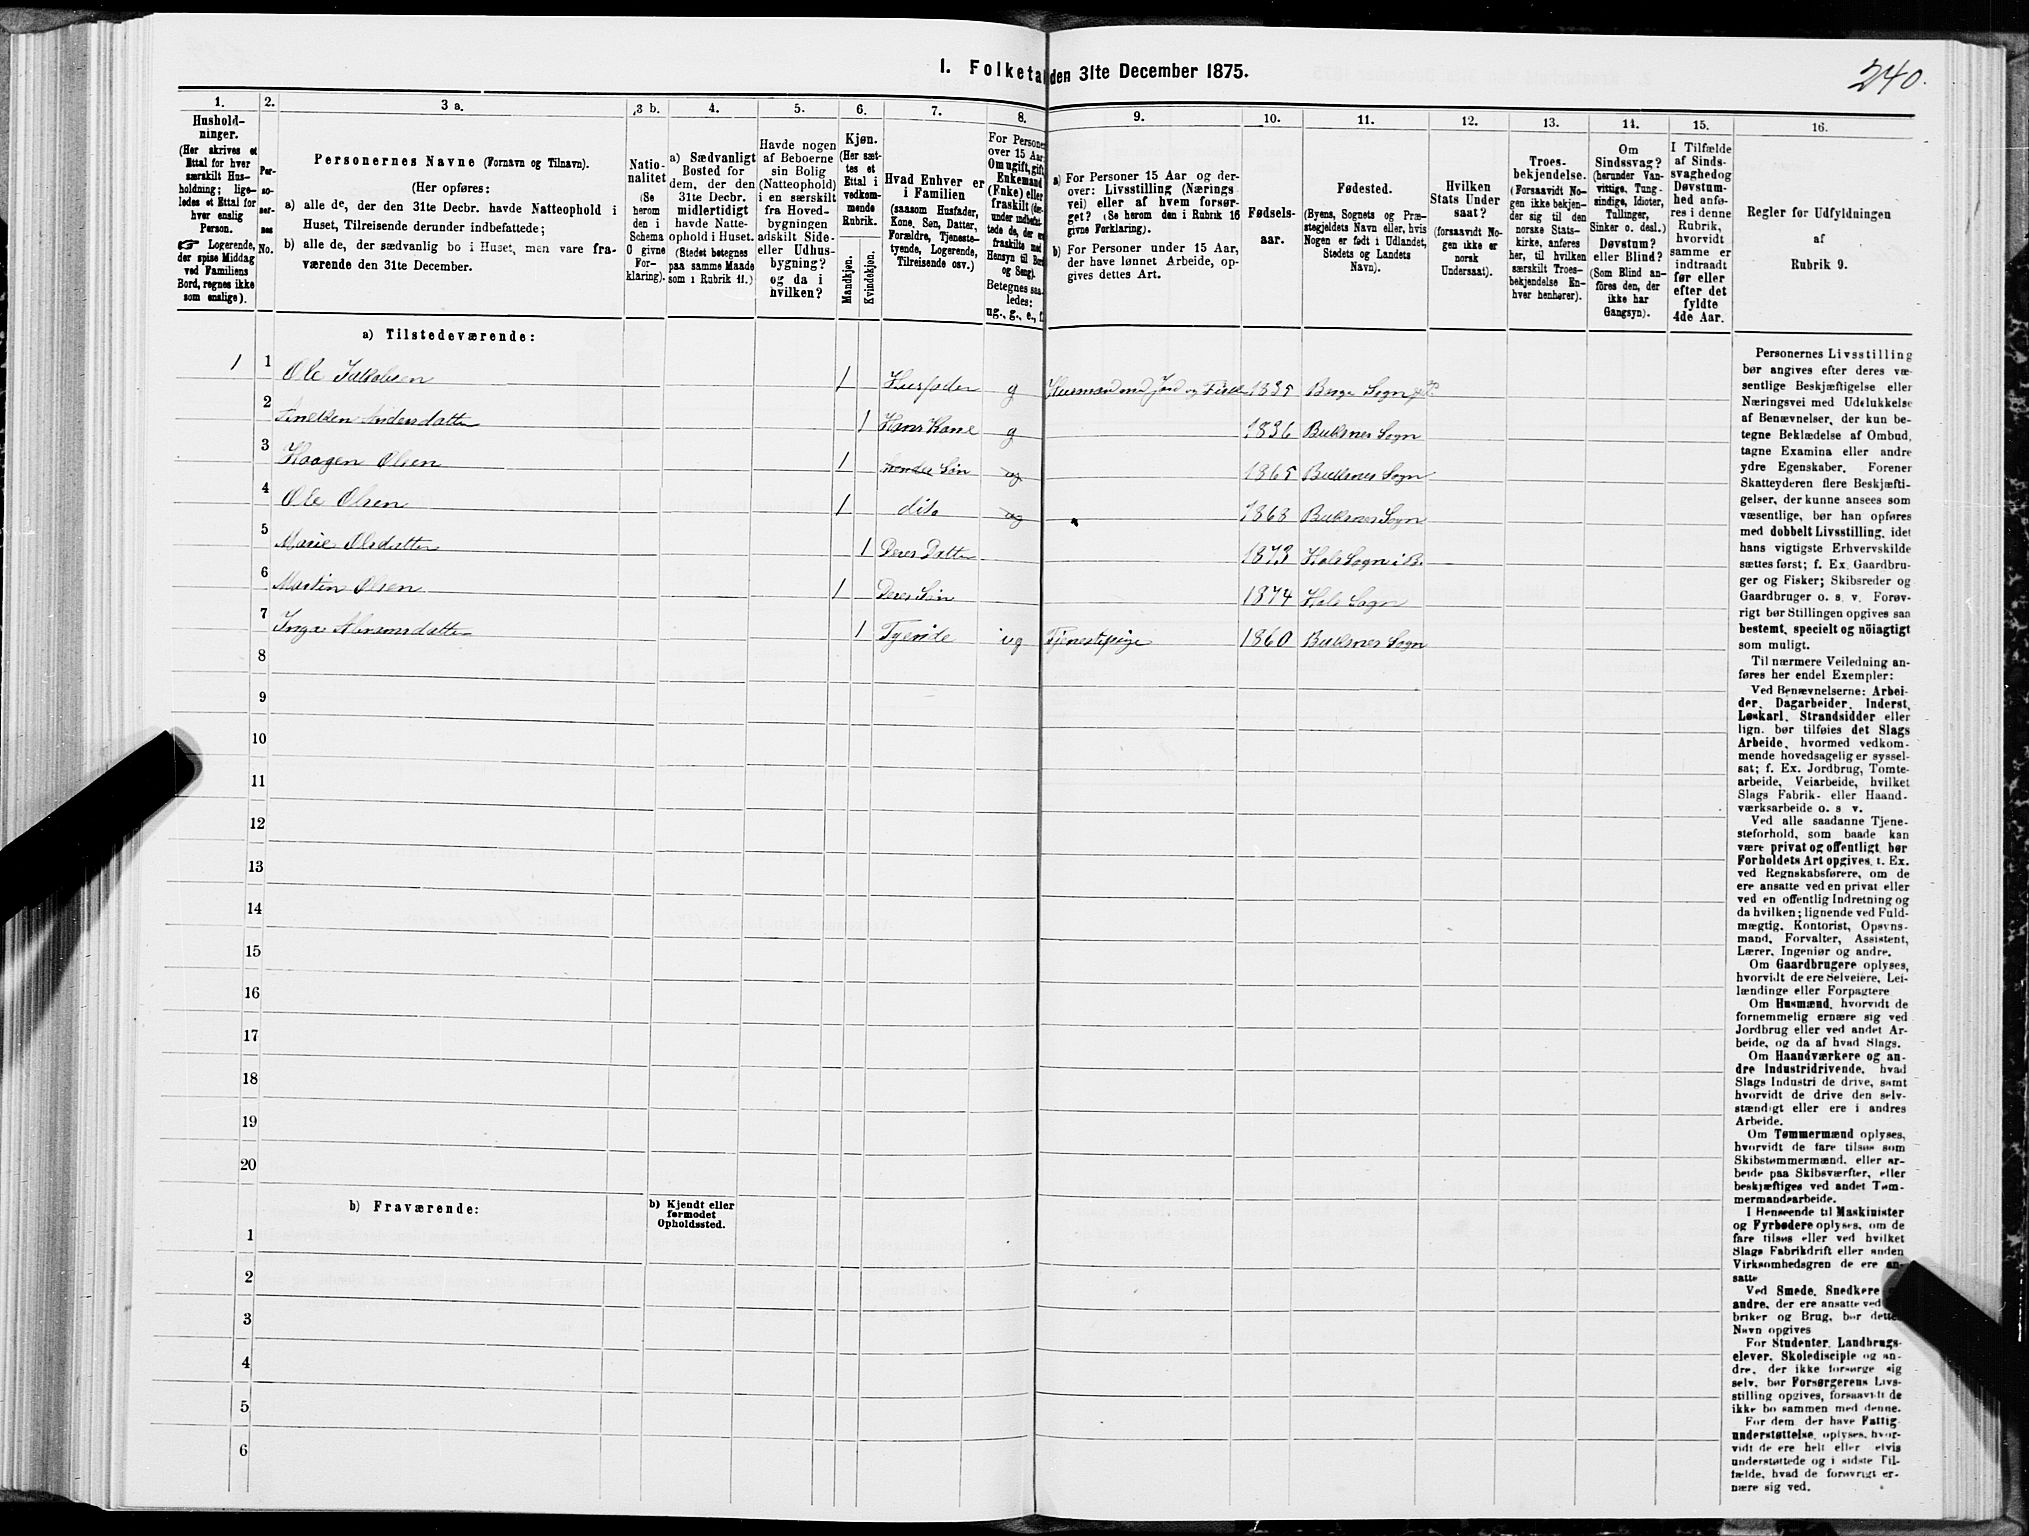 240.
I. Folketal den 31te December 1875.
1.
Hushold-
ninger.
(Her skrives et
Ettal for hver
særskilt Hus-
holdning; lige-
ledes et Ettal for
hver enslig
Person.
☞ Logerende,
der spise Middag
ved Familiens
Bord, regnes ikke
som enslige).
2.
Per-
so-
ner-
nes
No.
3 a.
Personernes Navne (Fornavn og Tilnavn).
(Her opføres:
a) alle de, der den 31te Decbr. havde Natteophold i
Huset, Tilreisende derunder indbefattede;
b) alle de, der sædvanlig bo i Huset, men vare fra-
værende den 31te December.
3 b.
Natio-
nalitet
(Se
herom
den i
Schema
O givne
For-
klaring).
4.
a) Sædvanligt
Bosted for
dem, der den
31te Decbr.
midlertidigt
havde Natte-
ophold i Huset.
(Stedet betegnes
paa samme Maade
som i Rubrik 11.)
5.
Havde nogen
af Beboerne
sin Bolig
(Natteophold)
i en særskilt
fra Hoved-
bygningen
adskilt Side-
eller Udhus-
bygning?
og da i
hvilken?
6.
Kjøn.
(Her sæt-
tes et
Ettal i
vedkom-
mende
Rubrik.
Mandkjøn.
Kvindekjøn.
7.
Hvad Enhver er
i Familien
(saasom Husfader,
Kone, Søn, Datter,
Forældre, Tjeneste-
tyende, Logerende,
Tilreisende osv.)
8.
For Personer
over 15 Aar:
Om ugift, gift,
Enkemand
(Enke) eller
fraskilt (der-
under indbefat-
tede de, der ere
fraskilte med
Hensyn til Bord
og Seng).
Betegnes saa-
ledes:
ug., g., e., f.
9.
a) For Personer 15 Aar og der-
over: Livsstilling (Nærings
vei) eller af hvem forsør-
get? (Se herom den i Rubrik 16
givne Forklaring).
b) For Personer under 15 Aar,
der have lønnet Arbeide, op-
gives dettes Art.
10.
Fødsels-
aar.
11.
Fødested.
(Byens, Sognets og Præ-
stegjeldets Navn eller, hvis
Nogen er født i Udlandet,
Stedets og Landets
Navn).
12.
Hvilken
Stats Under
saat?
(forsaavidt No-
gen ikke er
norsk
Undersaat).
13.
Troes-
bekjendelse.
(Forsaavidt No-
gen ikke bekjen-
der sig til den
norske Stats-
kirke, anføres
her, til hvilken
særskilt Troes-
bekjendelse En-
hver henhører).
14.
Om
Sindssvag?
(herunder Van-
vittige, Tung-
sindige, Idioter,
Tullinger,
Sinker o. desl.)
Døvstum?
eller Blind?
(Som Blind an-
föres den, der
ikke har
Gangsyn).
15.
I Tilfælde
af Sinds-
svaghed og
Døvstum-
hed anfø-
res i denne
Rubrik,
hvorvidt
samme er
indtraadt
før eller
efter det
fyldte
4de Aar.
16.
Regler for Udfyldningen
af
Rubrik 9.
a) Tilstedeværende:
1 1 Ole Jakobsen 1 Husfader g Husmand med Jord og Fisker 1835 Sogn
2 Andersdatter 1 Hans Kone g 1836 Buksnes Sogn
3 Haagen Olsen 1 hendes Søn ug 1865 Buksnes Sogn
4 Ole Olsen 1 dito ug 1868 Buksnes Sogn
5 Marie Olsdatter 1 Deres Datter 1873 Hols Sogn i B.
6 Martin Olsen 1 Deres Søn 1874 Hols Sogn
7 Inga Abramsdatter 1 Tyende ug Tjenestepige 1860 Buksnes Sogn
8
9
10
11
12
13
14
15
16
17
18
19
20
b) Fraværende:
b) Kjendt eller
formodet
Opholdssted.
1
2
3
4
5
6
Personernes Livsstilling
bør angives efter deres væ-
sentlige Beskjæftigelse eller
Næringsvei med Udelukkelse
af Benævnelser, der kun be-
tegne Beklædelse af Ombud,
tagne Examina eller andre
ydre Egenskaber. Forener
Skatteyderen flere Beskjæfti-
gelser, der kunne ansees som
væsentlige, bør han opføres
med dobbelt Livsstilling, idet
hans vigtigste Erhvervskilde
sættes først; f. Ex. Gaardbru-
ger og Fisker; Skibsreder og
Gaardbruger o. s. v. Forøv-
rigt bør Stillingen opgives saa
bestemt, specielt og nöiagtigt
som muligt.
Til nærmere Veiledning an-
føres her endel Exempler:
Ved Benævnelserne: Arbei-
der, Dagarbeider, Inderst,
Løskarl, Strandsidder eller
lign. bør tilføies det Slags
Arbeide, hvormed vedkom-
mende hovedsagelig er syssel-
sat; f. Ex. Jordbrug, Tomte-
arbeide, Veiarbeide, hvilket
Slags Fabrik- eller Haand-
værksarbeide o. s v.
Ved alle saadanne Tjene-
steforhold, som baade kan
være privat og offentligt, bør
Forholdets Art opgives, t. Ex.
ved Regnskabsførere, om de
ere ansatte ved en privat eller
ved en offentlig Indretning og
da hvilken; lignende ved Fuld-
mægtig, Kontorist, Opsyns-
mand, Forvalter, Assistent,
Lærer, Ingeniør og andre.
Om Gaardbrugere oplyses,
hvorvidt de ere Selveiere, Lei-
lændinge eller Forpagtere
Om Husmænd, hvorvidt de
fornemmelig ernære sig ved
Jordbrug eller ved andet Ar-
beide, og da af hvad Slags.
Om Haandværkere og an-
dre Industridrivende, hvad
Slags Industri de drive, samt
hvorvidt de drive den selv-
stændigt eller ere i andres
Arbeide.
Om Tømmermænd oplyses,
hvorvidt de fare tilsøs som
Skibstømmermænd, eller ar-
beide paa Skibsværfter, eller
beskjæftiges ved andet Tøm-
mermandsarbeide.
I Henseende til Maskinister
og Fyrbødere oplyses, om de
fare tilsøs eller ved hvilket
Slags Fabrikdrift eller anden
Virksomhedsgren de ere an-
satte
Ved Smede, Snedkere
andre, der ere ansatte ved
briker og Brug, bør dette
Navn opgives
For Studenter, Landbrugs-
elever, Skoledisciple og an-
dre, der ikke forsørge sig
selv, bør Forsørgerens Livs-
stilling opgives, forsaavidt de
ikke bo sammen med denne.
For dem, der have Fattig-
understøttelse, oplyses, hvor-
vidt de ere helt eller delvis
understøttede og i sidste Til-
fælde, hvad de forøvrigt er-
nære sig ved.